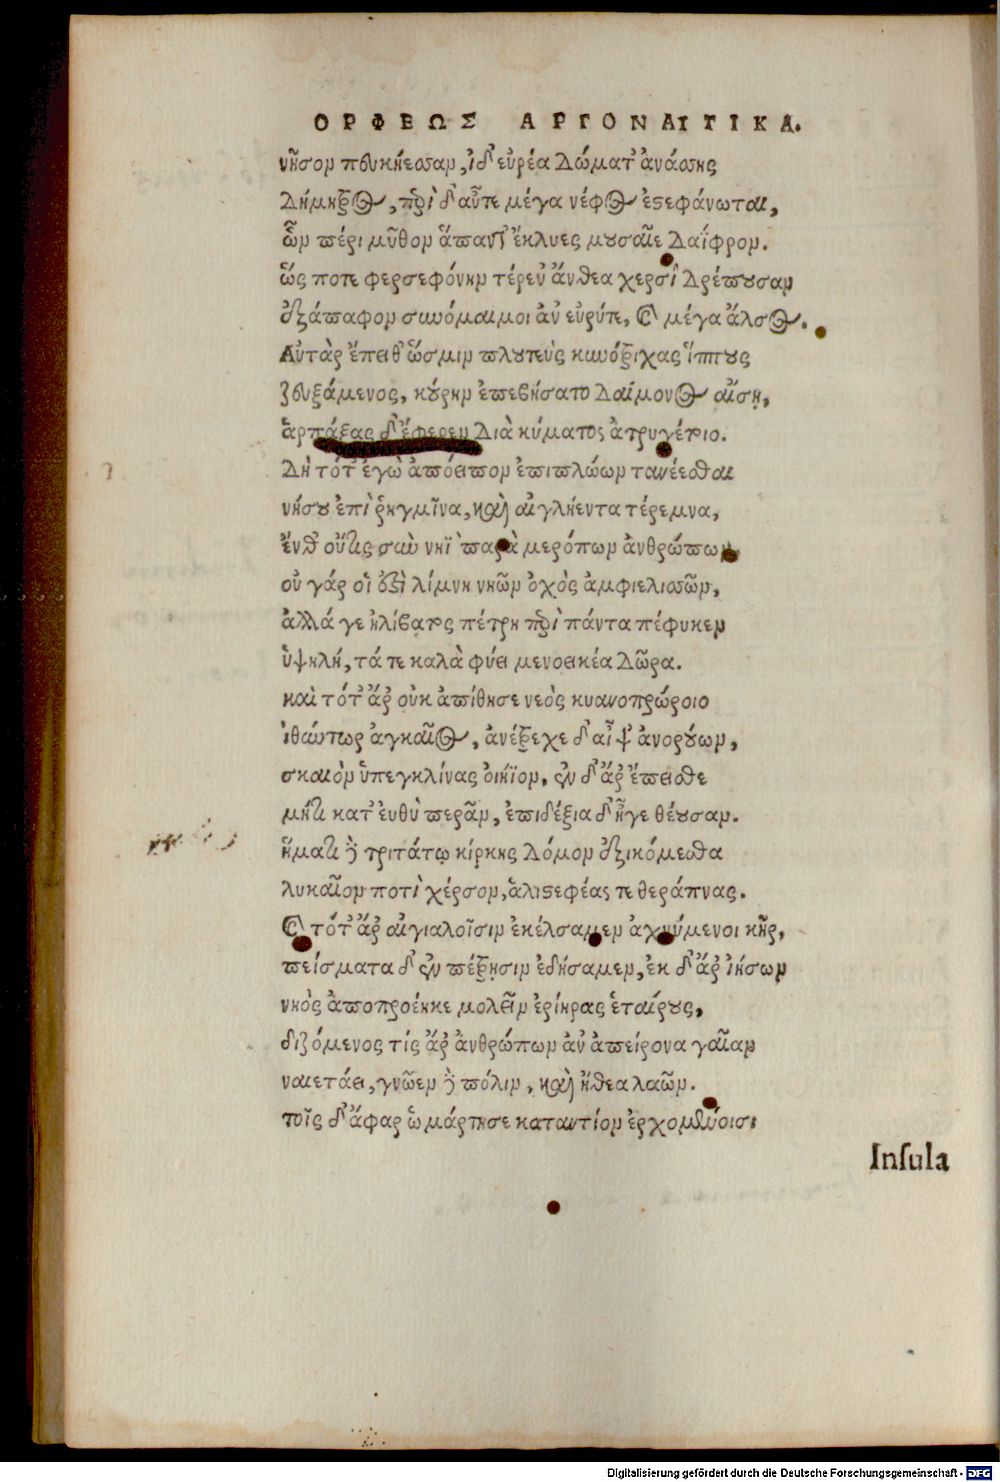 ΟΡΦΕΩΣ ΑΡΓΟΝΑΥΤΙΚΑ.
νῆσον πευκήεσσαν, ἰδ' εὐρέα δώματ' ἀνάσσης
Δήμητρος, περὶ δ' αὖτε μέγα νέφος ἐστεφάνωται,
ὧν πέρι μῦθον ἅπαντ' ἔκλυες μουσαῖε δαΐφρον.
ὥς ποτε φερσεφόνην τέρεν' ἄνθεα χερσὶ δρέπουσαν
ἐξάπαφον συνόμαιμοι ἀν' εὐρύτε, καὶ μέγα ἄλσος.
Αὐτὰρ ἔπειθ' ὥσμιν πλουτεὺς κυανότριχας ἵππους
ζευξάμενος, κούρην ἐπεβήσατο δαίμονος αἴσῃ,
ἁρπάξας δ' ἔφερεν διὰ κύματος ἀτρυγέτοιο.
Δὴ τότ' ἐγὼ ἀπόειπον ἐπιπλώων τανέεσθαι
νήσου ἐπὶ ῥηγμῖνα, καὶ αἰγλήεντα τέρεμνα,
ἔνθ' οὔτις σὺν νηῒ παρὰ μερόπων ἀνθρώπων
οὐ γάρ οἱ ἐπὶ λίμνη νηῶν ὀχὸς ἀμφιελισσῶν,
ἀλλά γε ἠλίβατος πέτρη περὶ πάντα πέφυκεν
ὑψηλή, τά τε καλὰ φύει μενοεικέα δῶρα.
καὶ τότ' ἄρ' οὐκ ἀπίθησε νεὸς κυανοπρώροιο
ἰθύντωρ ἀγκαῖος, ἀνέτρεχε δ' αἶψ' ἀνορούων,
σκαιὸν ὑπεγκλίνας οἰήϊον, οὐ δ' ἄρ' ἔπεισθε
μήτι κατ' εὐθὺ περᾶν, ἐπιδέξια δ' ἦγε θέουσαν.
ἤματι δὲ τριτάτῳ κίρκης δόμον ἐξικόμεσθα
λυκαῖον ποτὶ χέρσον, ἁλιστεφέας τε θεράπνας.
καὶ τότ' ἄρ' αἰγιαλοῖσιν ἐκέλσαμεν ἀχνύμενοι κῆρ,
πείσματα δ' ἐν πέτρησιν ἐδήσαμεν, ἐκ δ' ἄρ' ἰήσων
νηὸς ἀποπροέηκε μολεῖν ἐρίηρας ἑταίρους,
διζόμενος τίς ἄρ' ἀνθρώπων ἀν' ἀπείρονα γαῖαν
ναιετάει, γνῶεν δὲ πόλιν, καὶ ἤθεα λαῶν.
τοῖς δ' ἄφαρ ὡμάρτησε καταντίον ἐρχομένοισι
Inſula
Digitalisierung gefördert durch die Deutsche Forschungsgemeinschaft - DFG